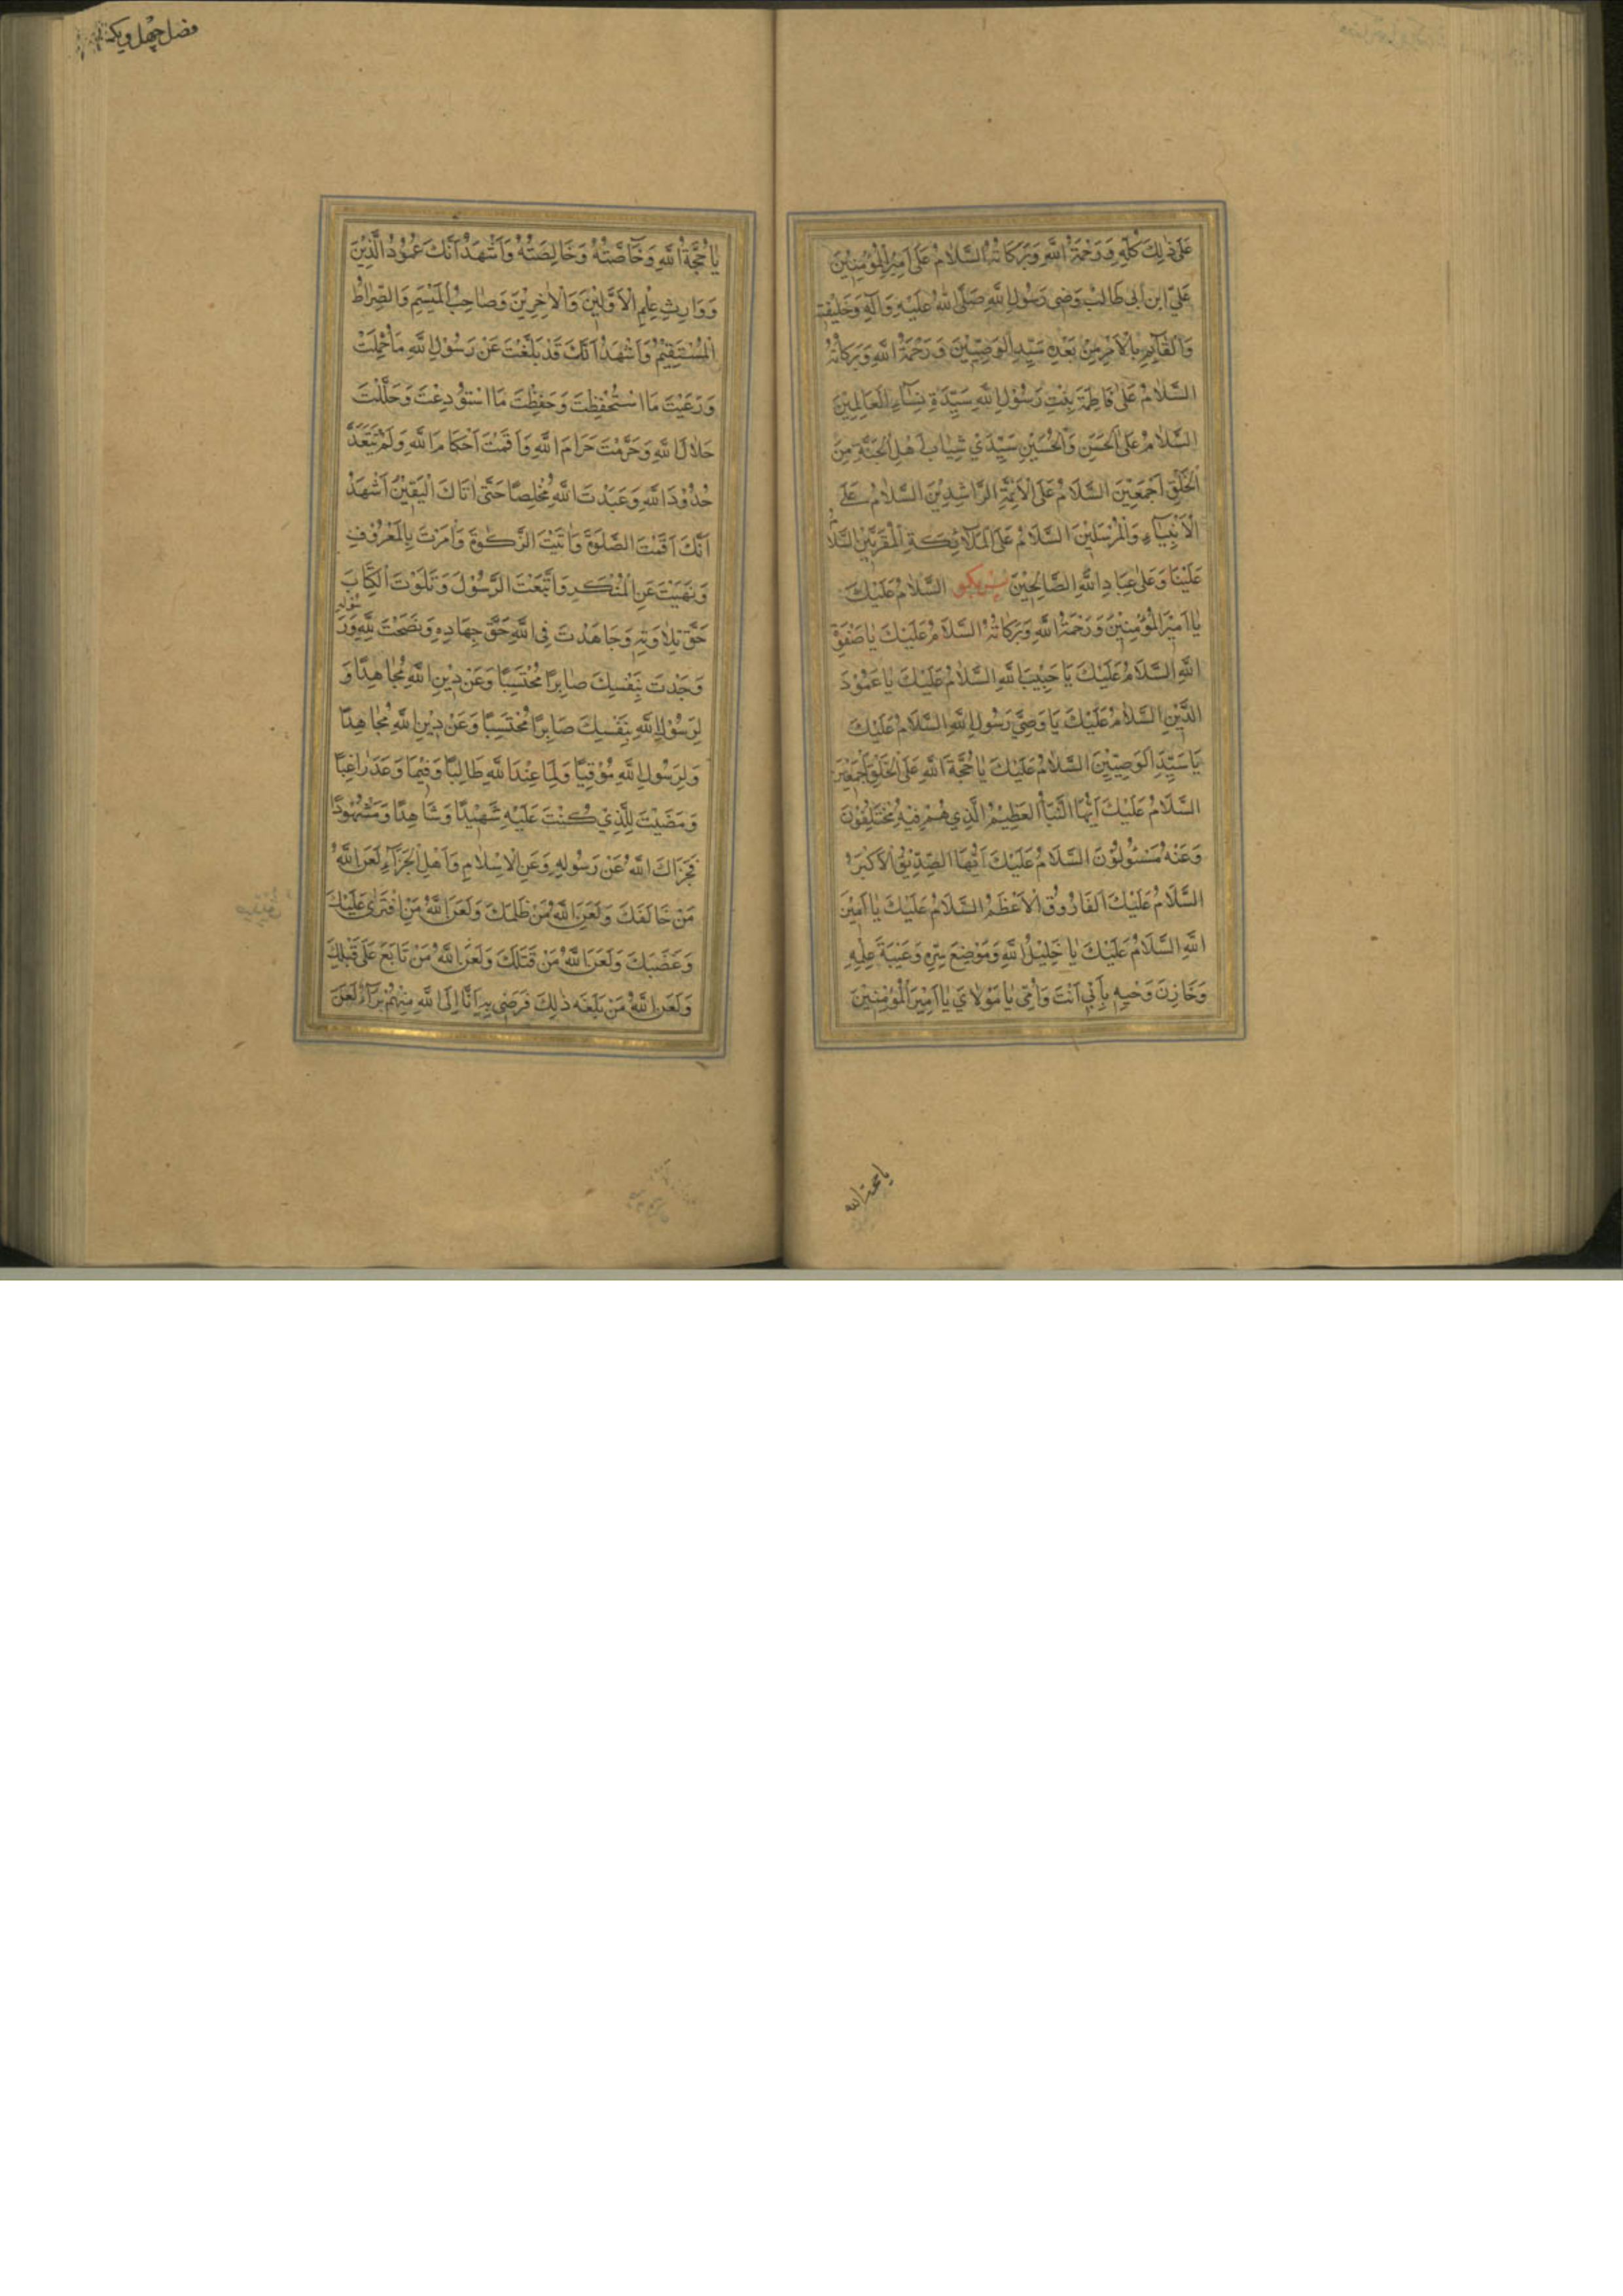 عَلَى ذٰلِكَ كُلِّهِ وَرَحْمَةُ اللهِ وَبَرَكَاتُهُ السَّلَامُ عَلَى اَمِيْرِ الْمُؤْمِنِيْنَ
عَلِيِّ ابْنِ اَبِي طَالِبْ وَصِي رَسُولِ اللهِ صَلَّى اللهُ عَلَيْهِ وَآلِهِ وَخَلِيْفَتِهِ
وَالْقَآئِمِ بِالْاَمْرِ مِنْ بَعْدِهِ سَيِّدِ الْوَصِيِّيْنَ وَرَحْمَةُ اللهِ وَبَرَكَاتُهُ
السَّلَامُ عَلٰى فَاطِمَةَ بِنْتِ رَسُوْلِ اللهِ سَيِّدَةِ نِسَآءِ الْعَالَمِيْنَ
السَّلَامُ عَلَى الْحَسَنِ وَالْحُسَيْنِ سَيِّدَيْ شَبَابِ اَهْلِ الْجَنَّةِ مِنَ
الْخَلْقِ اَجْمَعِيْنَ السَّلَامُ عَلَى الْاَئِمَّةِ الرَّاشِدِيْنَ السَّلَامُ عَلَى
الْاَنْبِيَآءِ وَالْمُرْسَلِيْنَ السَّلَامُ عَلَى الْمَلَآئِكَةِ الْمُقَرَّبِيْنَ السَّلَامُ
عَلَيْنَا وَعَلٰى عِبَادِ اللهِ الصَّالِحِيْنَ پس بگو السَّلَامُ عَلَيْكَ
يَا اَمِيْرَ الْمُؤْمِنِيْنَ وَرَحْمَةُ اللهِ وَبَرَكَاتُهُ السَّلَامُ عَلَيْكَ يَا صَفْوَةَ
اللهِ السَّلَامُ عَلَيْكَ يَا حَبِيْبَ اللهِ السَّلَامُ عَلَيْكَ يَا عَمُوْدَ
الدِّيْنِ السَّلَامُ عَلَيْكَ يَا وَصِيَّ رَسُولِ اللهِ السَّلَامُ عَلَيْكَ
يَا سَيِّدَ الْوَصِيِّيْنَ السَّلَامُ عَلَيْكَ يَا حُجَّةَ اللهِ عَلَى الْخَلْقِ اَجْمَعِيْنَ
السَّلَامُ عَلَيْكَ اَيُّهَا النَّبَأُ الْعَظِيْمُ الَّذِي هُمْ فِيْهِ مُخْتَلِفُوْنَ
وَعَنْهُ مَسْئُولُوْنَ السَّلَامُ عَلَيْكَ اَيُّهَا الصِّدِّيْقُ الْاَكْبَرُ
السَّلَامُ عَلَيْكَ الفَارُوْقُ الْاَعْظَمُ السَّلَامُ عَلَيْكَ يَا اَمِيْنَ
اللهِ السَّلَامُ عَلَيْكَ يَا خَلِيْلُ اللهِ وَمَوْضِعَ سِرِّهِ وَعَيْبَةَ عِلْمِهِ
وَخَازِنَ وَحْيِهِ بِاَبِي اَنْتَ وَاُمِّي يَا مَوْلَايَ يَا اَمِيْرَ الْمُؤْمِنِيْنَ
يا حجة الله
فصل چهل ويك
يَا حُجَّةَ اللهِ وَخَاصَّتُهُ وَخَالِصَتُهُ وَاَشْهَدُ اَنَّكَ عَمُوْدُ الدِّيْنَ
وَوَارِثِ عِلْمِ الْاَوَّلِيْنَ وَالْاٰخِرِيْنَ وَصَاحِبُ الْمَيْسَمِ وَالصِّرَاطُ
الْمُسْتَقِيْمُ وَاَشْهَدُ اَنَّكَ قَدْ بَلَّغْتَ عَنْ رَسُوْلِ اللهِ مَا حُمِّلْتَ
وَرَعَيْتَ مَا اسْتُحْفِظْتَ وَحَفِظْتَ مَا اسْتُوْدِعْتَ وَحَلَّلْتَ
حَلَالَ اللهِ وَحَرَّمْتَ حَرَامَ اللهِ وَاَقَمْتَ اَحْكَامَ اللهِ وَلَمْ تَتَعَدَّ
حُدُوْدَ اللهِ وَعَبَدْتَ اللهَ مُخْلِصًا حَتّٰى اَتَاكَ الْيَقِيْنَ اَشْهَدُ
اَنَّكَ اَقَمْتَ الصَّلٰوةَ وَاٰتَيْتَ الزَّكٰوةَ وَاَمَرْتَ بِالْمَعْرُوْفِ
وَنَهَيْتَ عَنِ الْمُنْكَرِ وَاتَّبَعْتَ الرَّسُوْلَ وَتَلَوْتَ الْكِتَابَ
حَقَّ تِلَاوَتِهِ وَجَاهَدْتَ فِي اللهِ حَقَّ جِهَادِهِ وَنَصَحْتَ لِلّٰهِ وَرَسُولِهِ
وَجُدْتَ بِنَفْسِكَ صَابِرًا مُحْتَسِبًا وَعَنْ دِيْنِ اللهِ مُجَاهِدًا وَ
لِرَسُوْلِ اللهِ بِنَفْسِكَ صَابِرًا مُحْتَسِبًا وَعَنْ دِيْنِ اللهِ مُجَاهِدًا
وَلِرَسُوْلِ اللهِ مُوْقِيًا وَلِمَا عِنْدَ اللهِ طَالِبًا وَفِيْمَا وَعَدَ رَاغِبًا
وَمَضَيْتَ لِلَّذِيْ كُنْتَ عَلَيْهِ شَهِيْدًا وَشَاهِدًا وَمَشْهُوْدًا
فَجَزَاكَ اللهُ عَنْ رَسُولِهِ وَعَنِ الْاِسْلَامِ وَاَهْلِ الْجَزَآءِ لَعَنَ اللهُ
مَنْ خَالَفَكَ وَلَعَنَ اللهُ مَنْ ظَلَمَكَ وَلَعَنَ اللهُ مَنِ افْتَرٰى عَلَيْكَ
وَغَضَبَكَ وَلَعَنَ اللهُ مَنْ قَتَلَكَ وَلَعَنَ اللهُ مَنْ تَابَعَ عَلَى قَتْلِكَ
وَلَعَنَ اللهُ مَنْ بَلَغَه ذٰلِكَ فَرَضِيَ بِهِ اَنَّا اِلَى اللهِ مِنْهُمْ بَرَآءٌ لَعَنَ